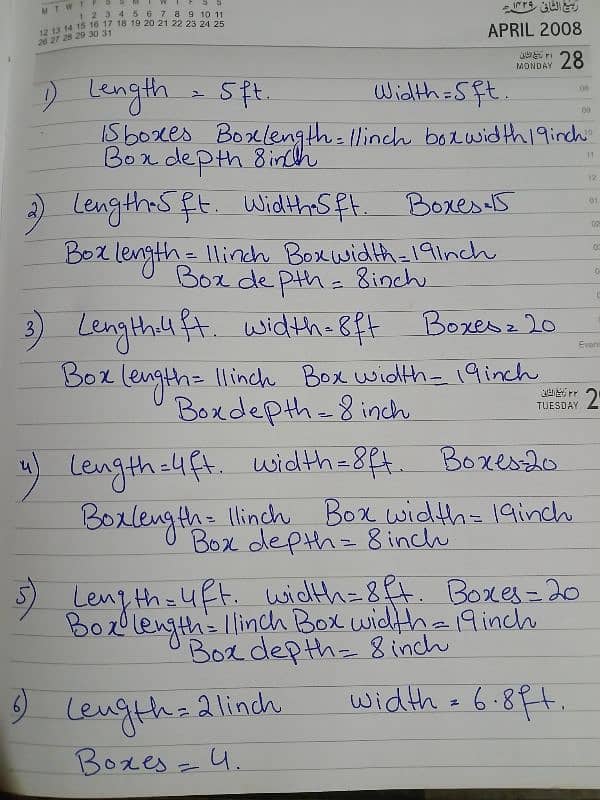 M T W T F S S M T W T F S S
1 2 3 4 5 6 7 8 9 10 11
12 13 14 15 16 17 18 19 20 21 22 23 24 25
26 27 28 29 30 31
ربيع الثانی ۱۴۲۹ھ
APRIL 2008
MONDAY 28
1) Length = 5ft. Width=5ft.
15boxes Boxlength=11inch boxwidth19inch
Box depth 8inch
2) Length=5ft. Width=5ft. Boxes=15
Box length = 11inch Boxwidth=19Inch
Box depth = 8inch
3) Length=4ft. width=8ft Boxes=20
Box length= 11inch Box width= 19inch
Boxdepth = 8 inch
TUESDAY 2
4) Length=4ft. width=8ft. Boxes=20
Boxlength= 11inch Box width= 19inch
Box depth= 8inch
5) Length=4ft. width=8ft. Boxes=20
Box length=11inch Box width=19inch
Box depth= 8inch
6) Length=21inch width = 6.8ft.
Boxes = 4.